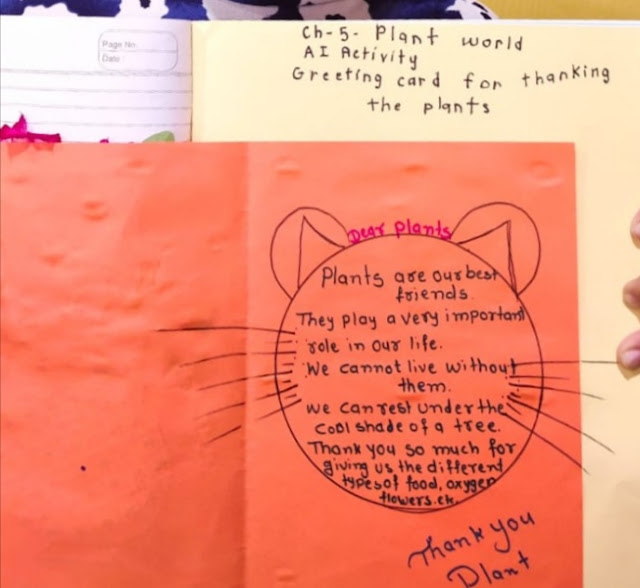 Page No.
Date :
Ch-5- Plant world
AI Activity
Greeting card for thanking
the plants
Dear Plants
Plants are our best
friends.
They play a very important
role in our life.
We cannot live without
them.
We can rest under the
cool shade of a tree.
Thank you so much for
giving us the different
types of food, oxygen
flowers.etc.
Thank you
Plant